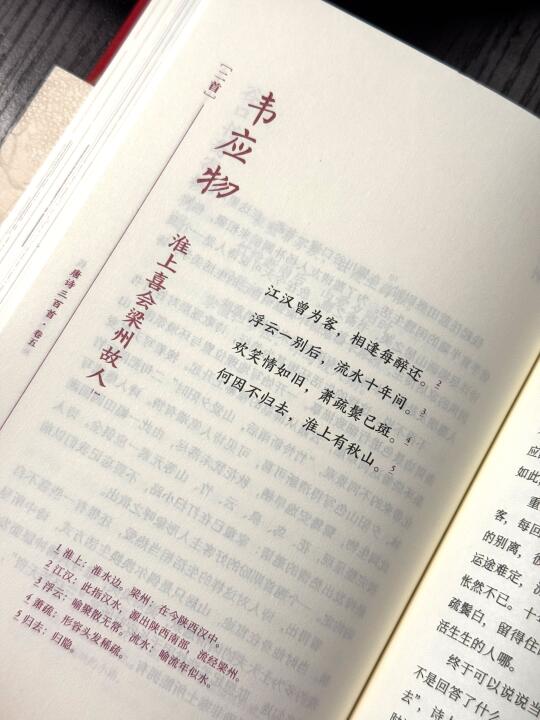 [二首]
韦应物
淮上喜会梁州故人1
江汉曾为客，相逢每醉还。2
浮云一别后，流水十年间。3
欢笑情如旧，萧疏鬓已斑。4
何因不归去，淮上有秋山。5
唐诗三百首·卷五
1 淮上：淮水边。梁州：在今陕西汉中。
2 江汉：此指汉水，源出陕西南部，流经梁州。
3 浮云：喻聚散无常。流水：喻流年似水。
4 萧疏：形容头发稀疏。
5 归去：归隐。
如此
重
客，每回
的别离，彼
运途难定，
怅然不已。十
疏鬓白，留得住
活生生的人哪。
终于可以说说当
不是回答了什么
去”，诗